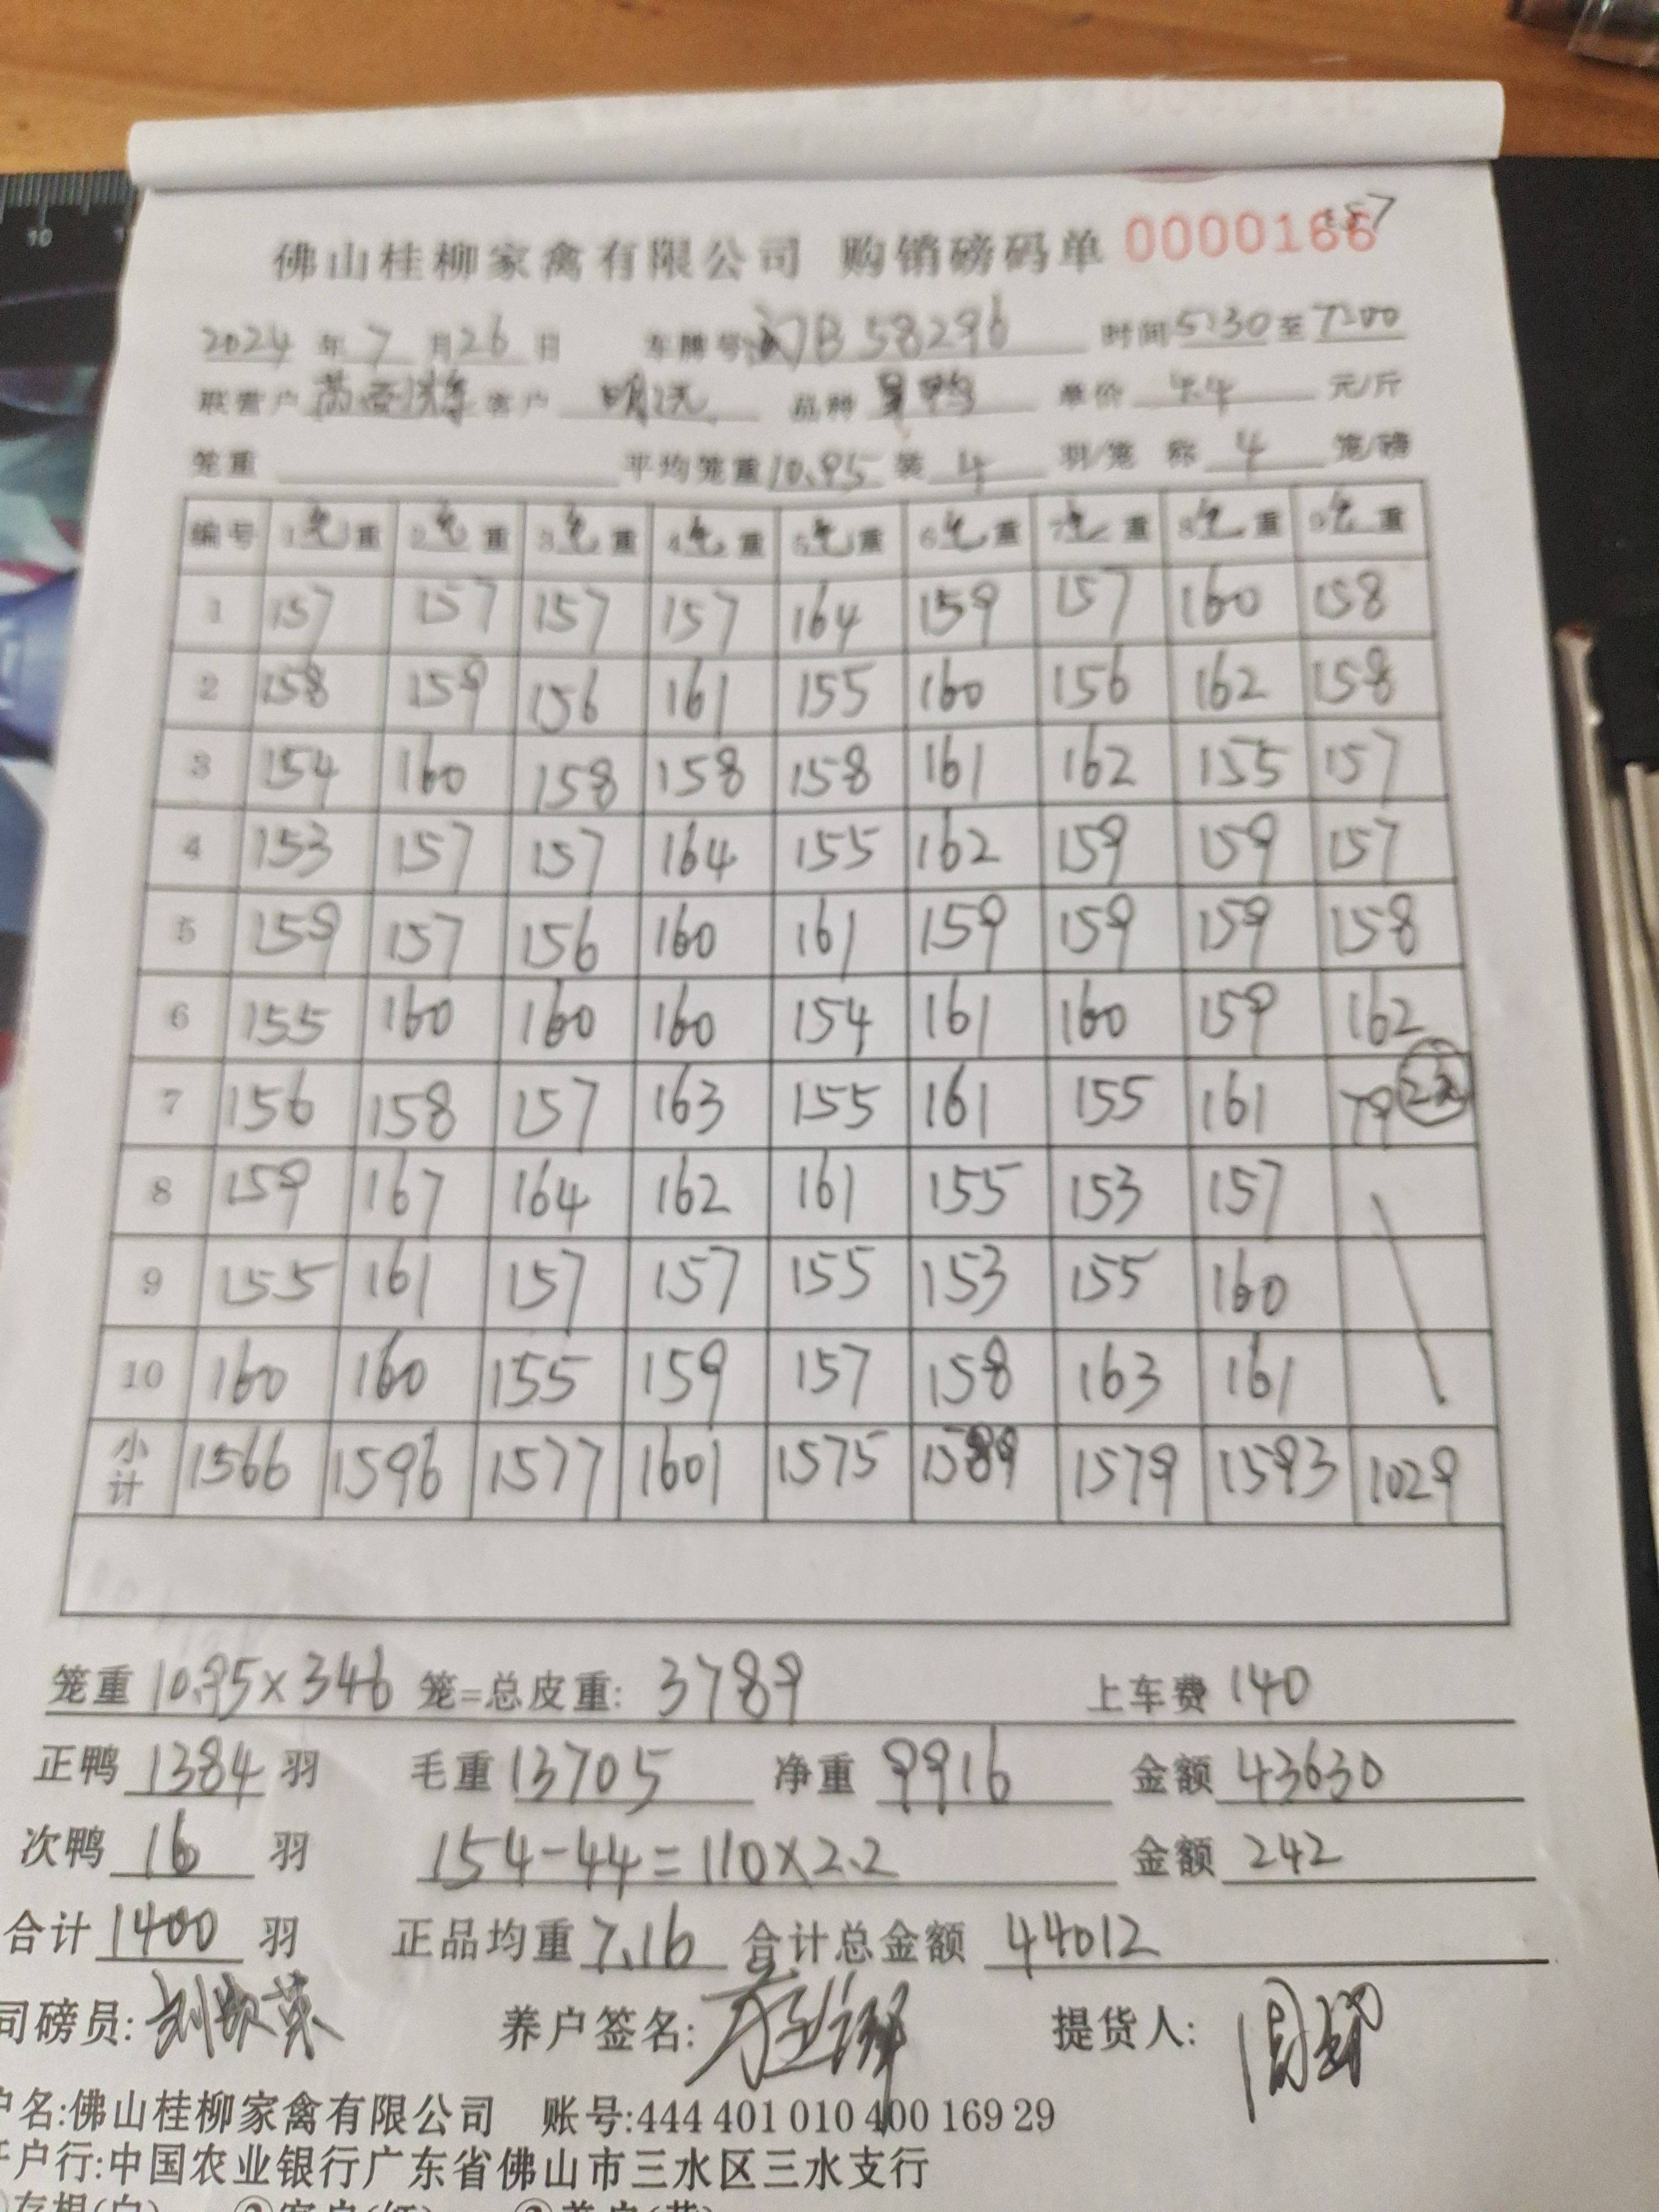 157
佛山桂柳家禽有限公司 购销磅码单 0000166
2024 年 7 月 26 日 车牌号 B58296 时间 5:30 至 7:00
联营户 客户 明 品种 鸭 单价 4.4 元/斤
笼重 平均笼重 10.95 装 4 羽/笼 称 4 笼/磅
编号 1毛重 2毛重 3毛重 4毛重 5毛重 6毛重 7毛重 8毛重 9毛重
1 157 157 157 157 164 159 157 160 158
2 158 159 156 161 155 160 156 162 158
3 154 160 158 158 158 161 162 155 157
4 153 157 157 164 155 162 159 159 157
5 159 157 156 160 161 159 159 159 158
6 155 160 160 160 154 161 160 159 162
7 156 158 157 163 155 161 155 161 79
8 159 167 164 162 161 155 153 157
9 155 161 157 157 155 153 155 160
10 160 160 155 159 157 158 163 161
小计 1566 1596 1577 1601 1575 1589 1579 1593 1029
笼重 10.95×346 笼=总皮重: 3789 上车费 140
正鸭 1384 羽 毛重 13705 净重 9916 金额 43630
次鸭 16 羽 154-44=110×2.2 金额 242
合计 1400 羽 正品均重 7.16 合计总金额 44012
司磅员: 养户签名: 提货人:
户名:佛山桂柳家禽有限公司 账号:444 401 010 400 169 29
开户行:中国农业银行广东省佛山市三水区三水支行